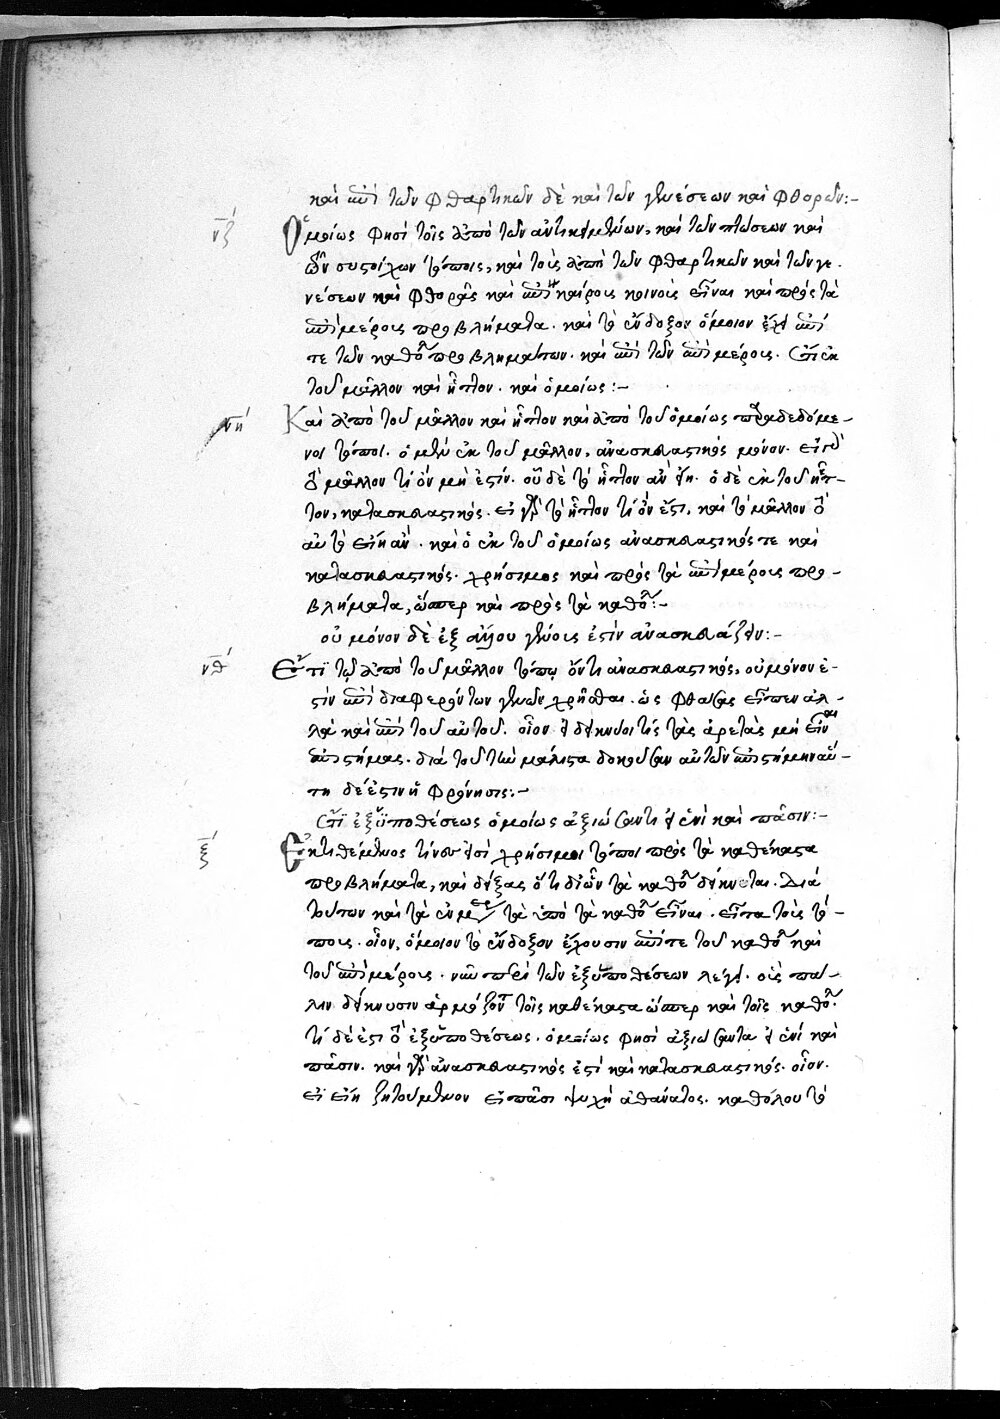 καὶ ἐπὶ τῶν φθαρτικῶν δὲ καὶ τῶν γενέσεων καὶ φθορῶν:-
νζ
Ὁμοίως φησὶ τοῖς ἀπὸ τῶν ἀντικειμένων, καὶ τῶν πτώσεων καὶ
τῶν συστοίχων τόποις, καὶ τοὺς ἀπὸ τῶν φθαρτικῶν καὶ τῶν γε
νέσεων καὶ φθορᾶς καὶ ἐπικαίρους κοινοὺς εἶναι καὶ πρὸς τὰ
ἐπὶ μέρους προβλήματα. καὶ τὸ ἔνδοξον ὅμοιον ἔχει ἐπί
τε τῶν καθόλου προβλημάτων. καὶ ἐπὶ τῶν ἐπὶ μέρους. ἔτι ἐκ
τοῦ μᾶλλον καὶ ἧττον. καὶ ὁμοίως:-
νή
Καὶ ἀπὸ τοῦ μᾶλλον καὶ ἧττον καὶ ἀπὸ τοῦ ὁμοίως παραδεδομέ-
νοι τόποι. ὁ μὲν ἐκ τοῦ μᾶλλον, ἀνασκευαστικὸς μόνον. εἰ γὰρ
ὃ μᾶλλον τὶ ὂν μή ἐστιν. οὐδὲ τὸ ἧττον ἂν εἴη. ὁ δὲ ἐκ τοῦ ἧτ-
τον, κατασκευαστικός. εἰ γὰρ τὸ ἧττον τὶ ὂν ἔστι, καὶ τὸ μᾶλλον ὂν
αὐτὸ εἴη ἄν. καὶ ὁ ἐκ τοῦ ὁμοίως ἀνασκευαστικός τε καὶ
κατασκευαστικός. χρήσιμος καὶ πρὸς τὰ ἐπὶ μέρους προ-
βλήματα, ὥσπερ καὶ πρὸς τὰ καθόλου:-
οὐ μόνον δὲ ἐξ ἄλλου γένους ἐστὶν ἀνασκευάζειν:-
νθ
Ἔτι τῷ ἀπὸ τοῦ μᾶλλον τόπῳ ὄντι ἀνασκευαστικός, οὐ μόνον ἐ-
στὶν ἐπὶ διαφερόντων γενῶν χρῆσθαι. ὡς φθάσας εἶπεν ἀλ-
λὰ καὶ ἐπὶ τοῦ αὐτοῦ. οἷον εἰ δεικνύοι τὶς τὰς ἀρετὰς μὴ εἶναι
ἐπιστήμας. διὰ τοῦ τὴν μάλιστα δοκοῦσαν αὐτῶν ἐπιστήμην αὕ-
τη δέ ἐστιν ἡ φρόνησις:-
ἔτι ἐξ ὑποθέσεως ὁμοίως ἀξιώσαντι εἰ ἑνὶ καὶ πᾶσιν:-
ξ
Ἐκτιθέμενος τίνες εἰσὶ χρήσιμοι τόποι πρὸς τὰ καθέκαστα
προβλήματα, καὶ δείξας ὅτι δι' ὧν τὰ καθόλου δείκνυται. διὰ
τούτων καὶ τὰ ἐν μέρει τὰ ὑπὸ τὰ καθόλου εἶναι. εἶτα τοὺς τό-
πους. οἷον, ὅμοιον τὸ ἔνδοξον ἔχουσιν ἐπί τε τοῦ καθόλου καὶ
τοῦ ἐπὶ μέρους. νῦν περὶ τῶν ἐξ ὑποθέσεων λέγει. οὓς πά-
λιν δείκνυσιν ἁρμόζοντας τοῖς καθέκαστα ὥσπερ καὶ τοῖς καθόλου.
τί δέ ἐστι τὸ ἐξ ὑποθέσεως. ὁμοίως φησὶ ἀξιώσαντα εἰ ἑνὶ καὶ
πᾶσιν. καὶ γὰρ ἀνασκευαστικός ἐστι καὶ κατασκευαστικός. οἷον.
εἰ εἴη ζητούμενον εἰ πᾶσα ψυχὴ ἀθάνατος. καθόλου τὸ